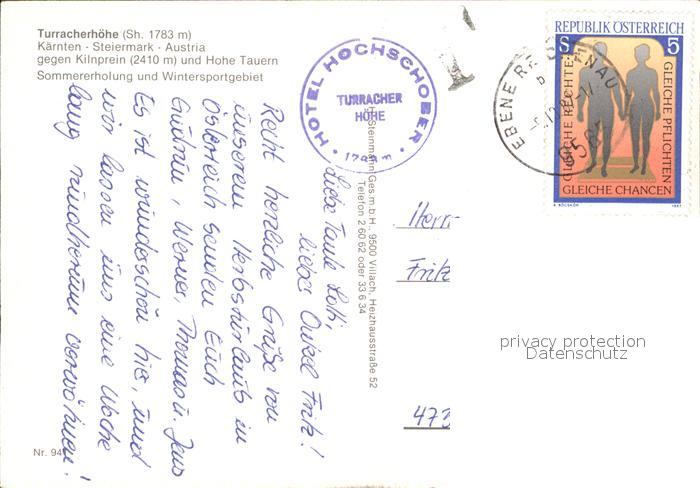 Turracherhöhe (Sh. 1783 m)
Kärnten - Steiermark - Austria
gegen Kilnprein (2410 m) und Hohe Tauern
Sommererholung und Wintersportgebiet
HOTEL HOCHSCHOBER
TURRACHER
HÖHE
REPUBLIK ÖSTERREICH
S 5
GLEICHE RECHTE
GLEICHE PFLICHTEN
GLEICHE CHANCEN
1987
EBENE REICHENAU
Liebe Tante Lotti,
lieber Onkel Fritz!
Recht herzliche Grüße von
unserem Herbsturlaub in
Österreich senden Euch
Gudrun, Werner, Thomas u. Jens
Es ist wunderschön hier, und
wir lassen uns eine Woche
lang rundherum verwöhnen!
Steinmann Ges.m.b.H., 9500 Villach, Heizhausstraße 52
Telefon 2 60 62 oder 33 6 34
Herrn
Fritz
473
privacy protection
Datenschutz
Nr. 94